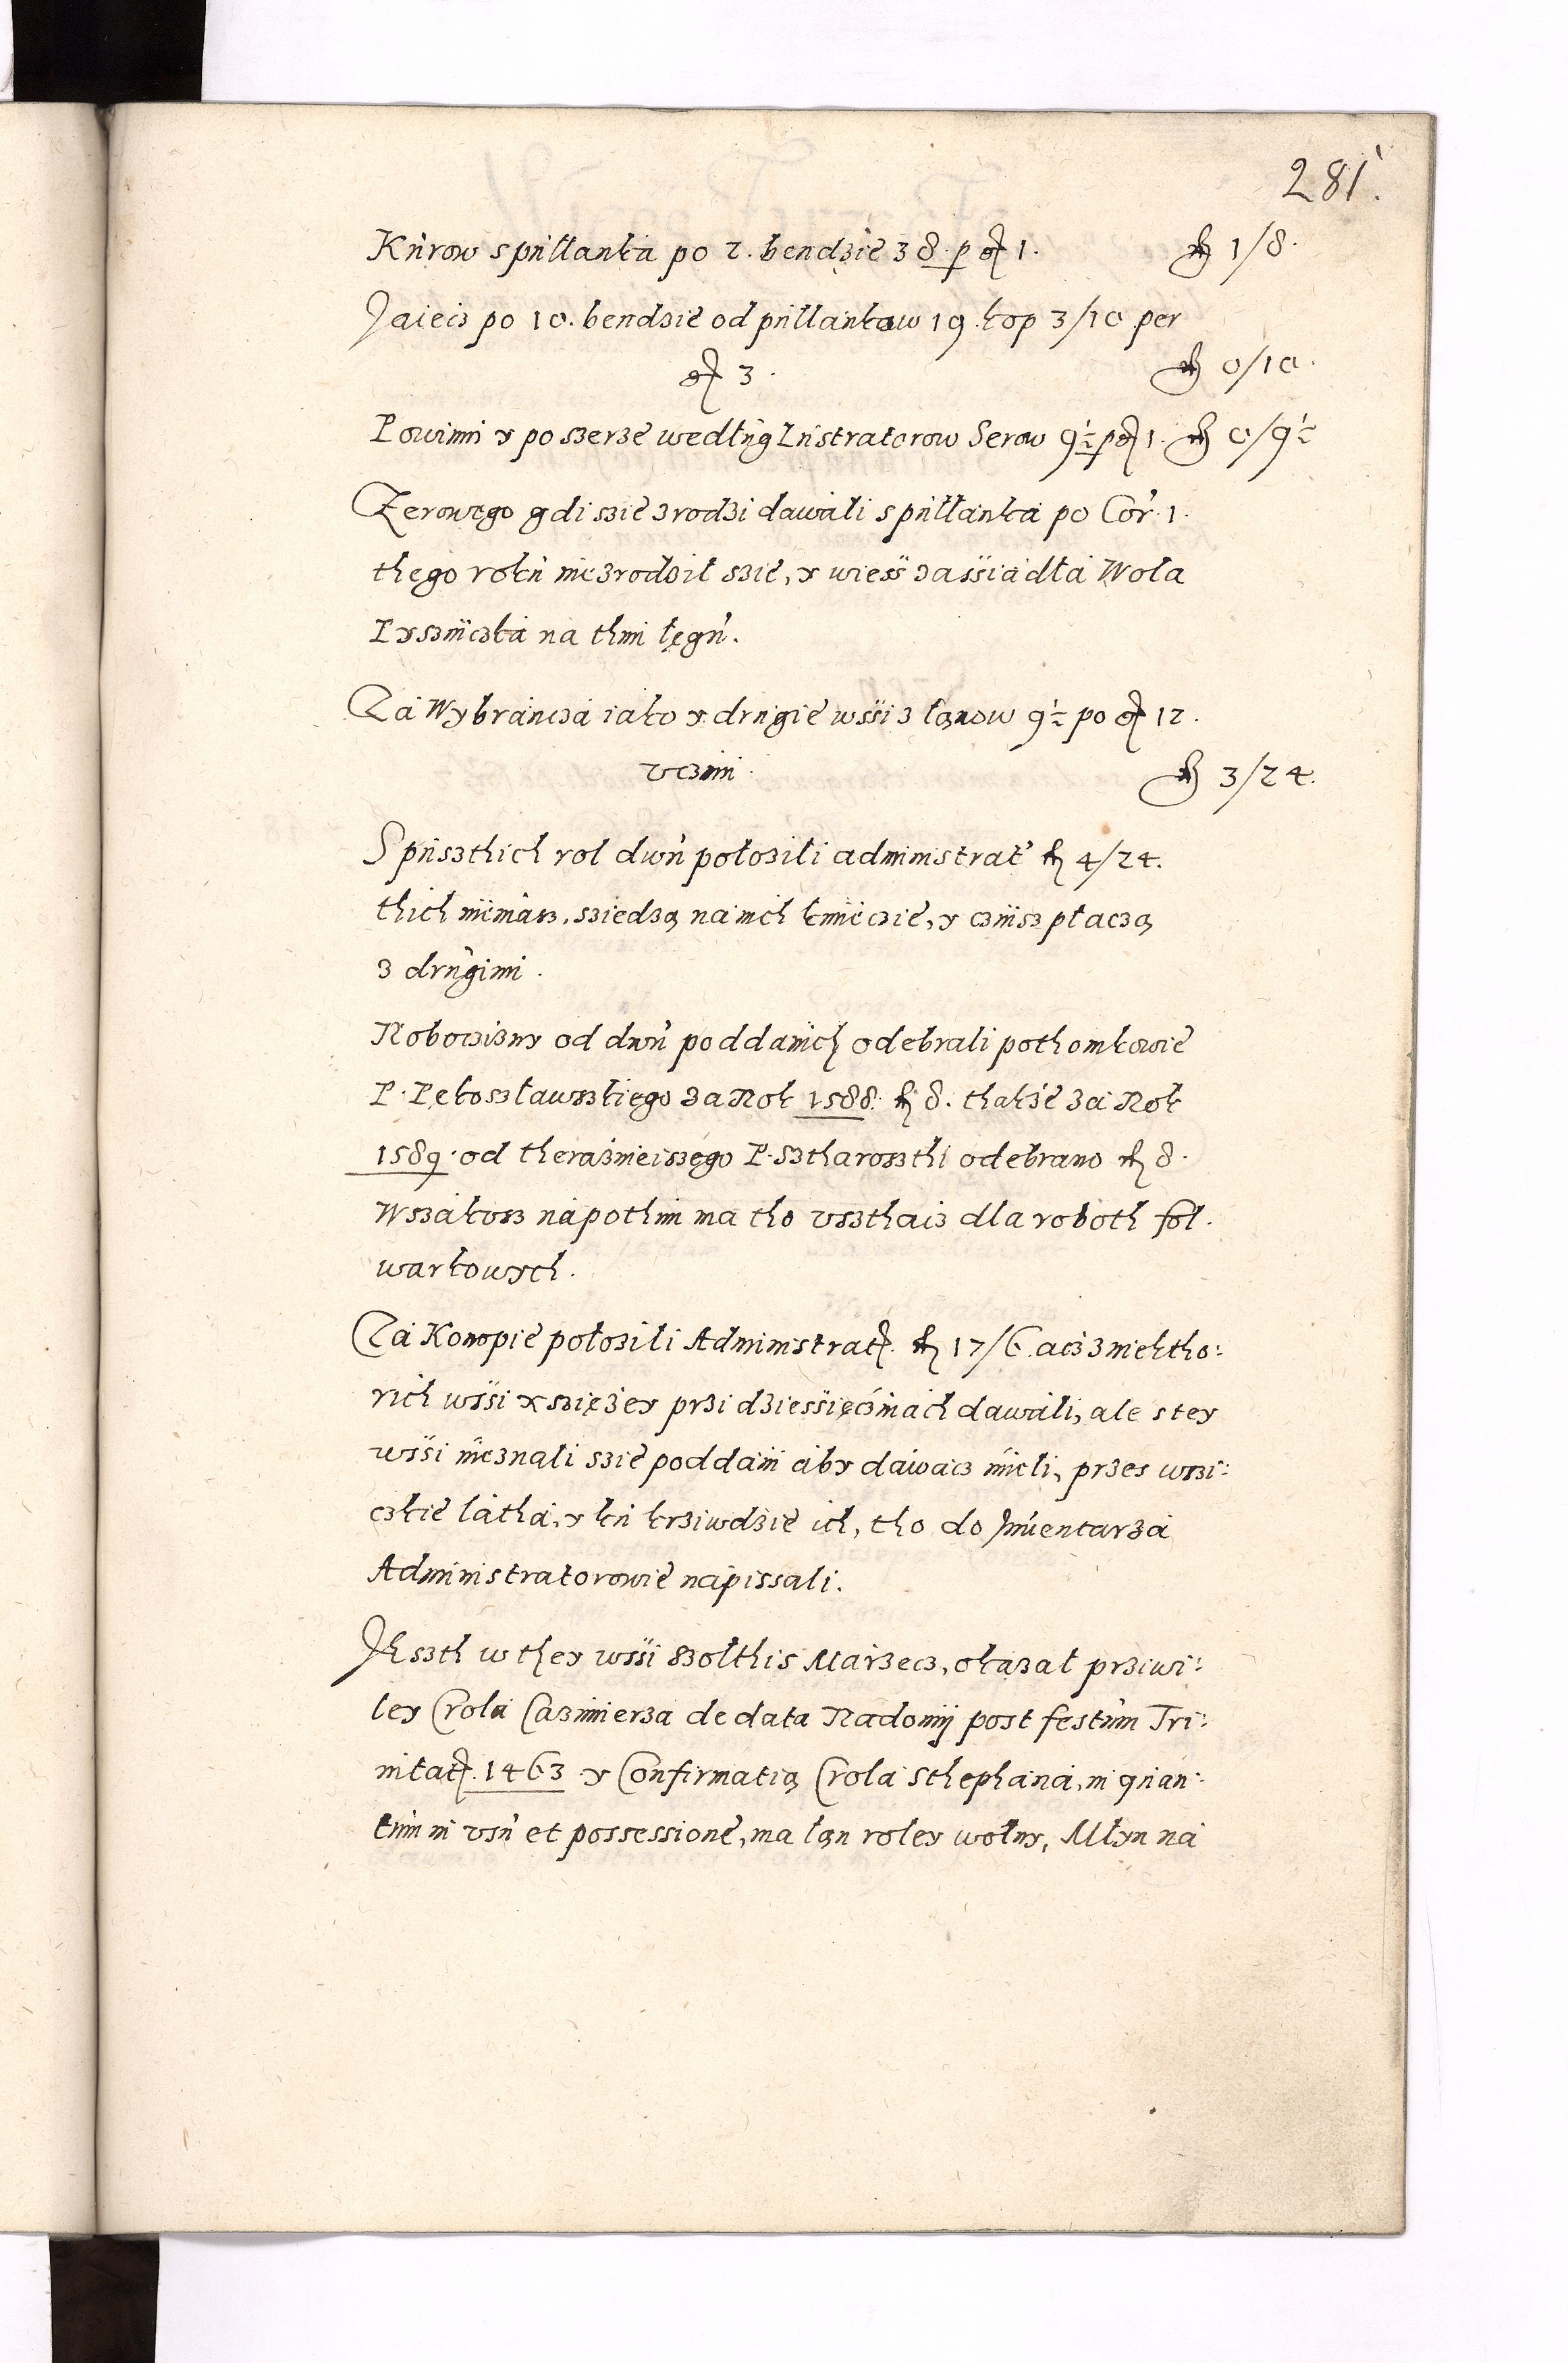 281.
Kurow s pułlanka po 2. bendzie 38. p gr 1. fl 1/8.
Jaiecz po 10. bendzie od pułlankow 19. kop 3/10 per
gr 3. fl 0/10.
Powinni y po szerze wedlug Lustratorow Serow 9½ p gr 1. fl 0/9½
Zerowego gdi szie zrodzi dawali s pułlanka po Cor. 1.
thego roku niezrodził szie, y wiess zassiadła Wola
Pyszniczka na thim łęgu.
Za Wybrancza iako y drugie wssi z łanow 9½ po gr 12.
vczini. fl 3/24.
S puszthich rol dwu położili administrat fl 4/24.
thich niemasz, sziedzą na nich kmieczie, y czinsz płaczą
z drugimi.
Robocizny od dwu poddanich odebrali pothomkowie
P. Pękoszławszkiego za Rok 1588. fl 8. thakze za Rok
1589. od therazniejszego P. Sztharoszthi odebrano fl 8.
Wszakosz napothim ma tho vszthacz dla roboth fol.
warkowych.
Za Konopie położili Administrat. fl 17/6. acz z niektho:
rich wssi y szięzey przi dziessięczinach dawali, ale s tey
wssi nieznali szie poddani aby dawacz mieli, przes wszi:
czkie latha, y ku krziwdzie ich, tho do Inuentarza
Administratorowie napissali.
Jeszth w they wssi Szolthis Marzecz, okazał prziwi:
ley Crola Cazimierza de data Radomij post festum Tri:
nitat. 1463 y Confirmatią Crola Stephana, in quan:
tum in vsu et possessione, ma łan roley wolny, Młyn na